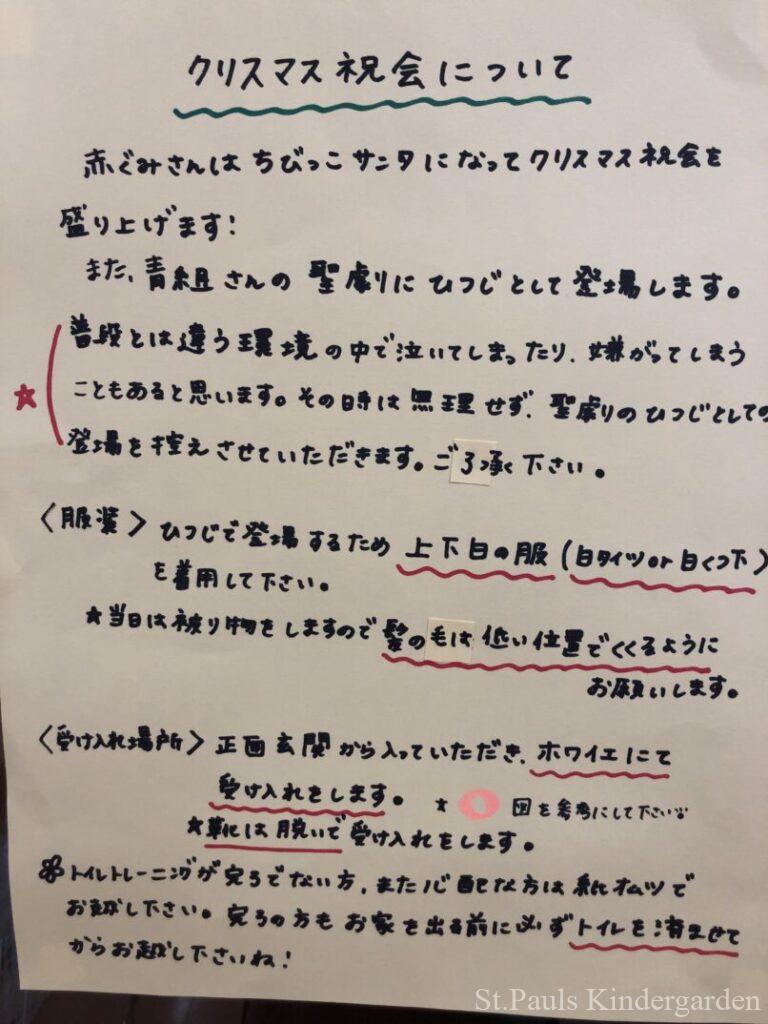 クリスマス祝会について
赤ぐみさんは ちびっこサンタになってクリスマス祝会を
盛り上げます!
また、青組さんの 聖劇に ひつじとして 登場します。
普段とは違う環境の中で泣いてしまったり、嫌がってしまう
こともあると思います。その時は無理せず、聖劇のひつじとしての
登場を控えさせていただきます。ご了承く下さい。
〈服装〉ひつじで登場するため 上下白の服(白タイツor白くつ下)
を着用して下さい。
★当日は被り物をしますので髪の毛は低い位置でくくるように
お願いします。
〈受け入れ場所〉正面玄関から入っていただき、ホワイエにて
受け入れをします。 ★ 図を参考にして下さい
★靴は脱いで受け入れをします。
トイレトレーニングが完ろでない方、また心配な方は紙オムツで
お越し下さい。完ろの方もお家を出る前に必ずトイレを済ませて
からお越し下さいね!
St.Pauls Kindergarden